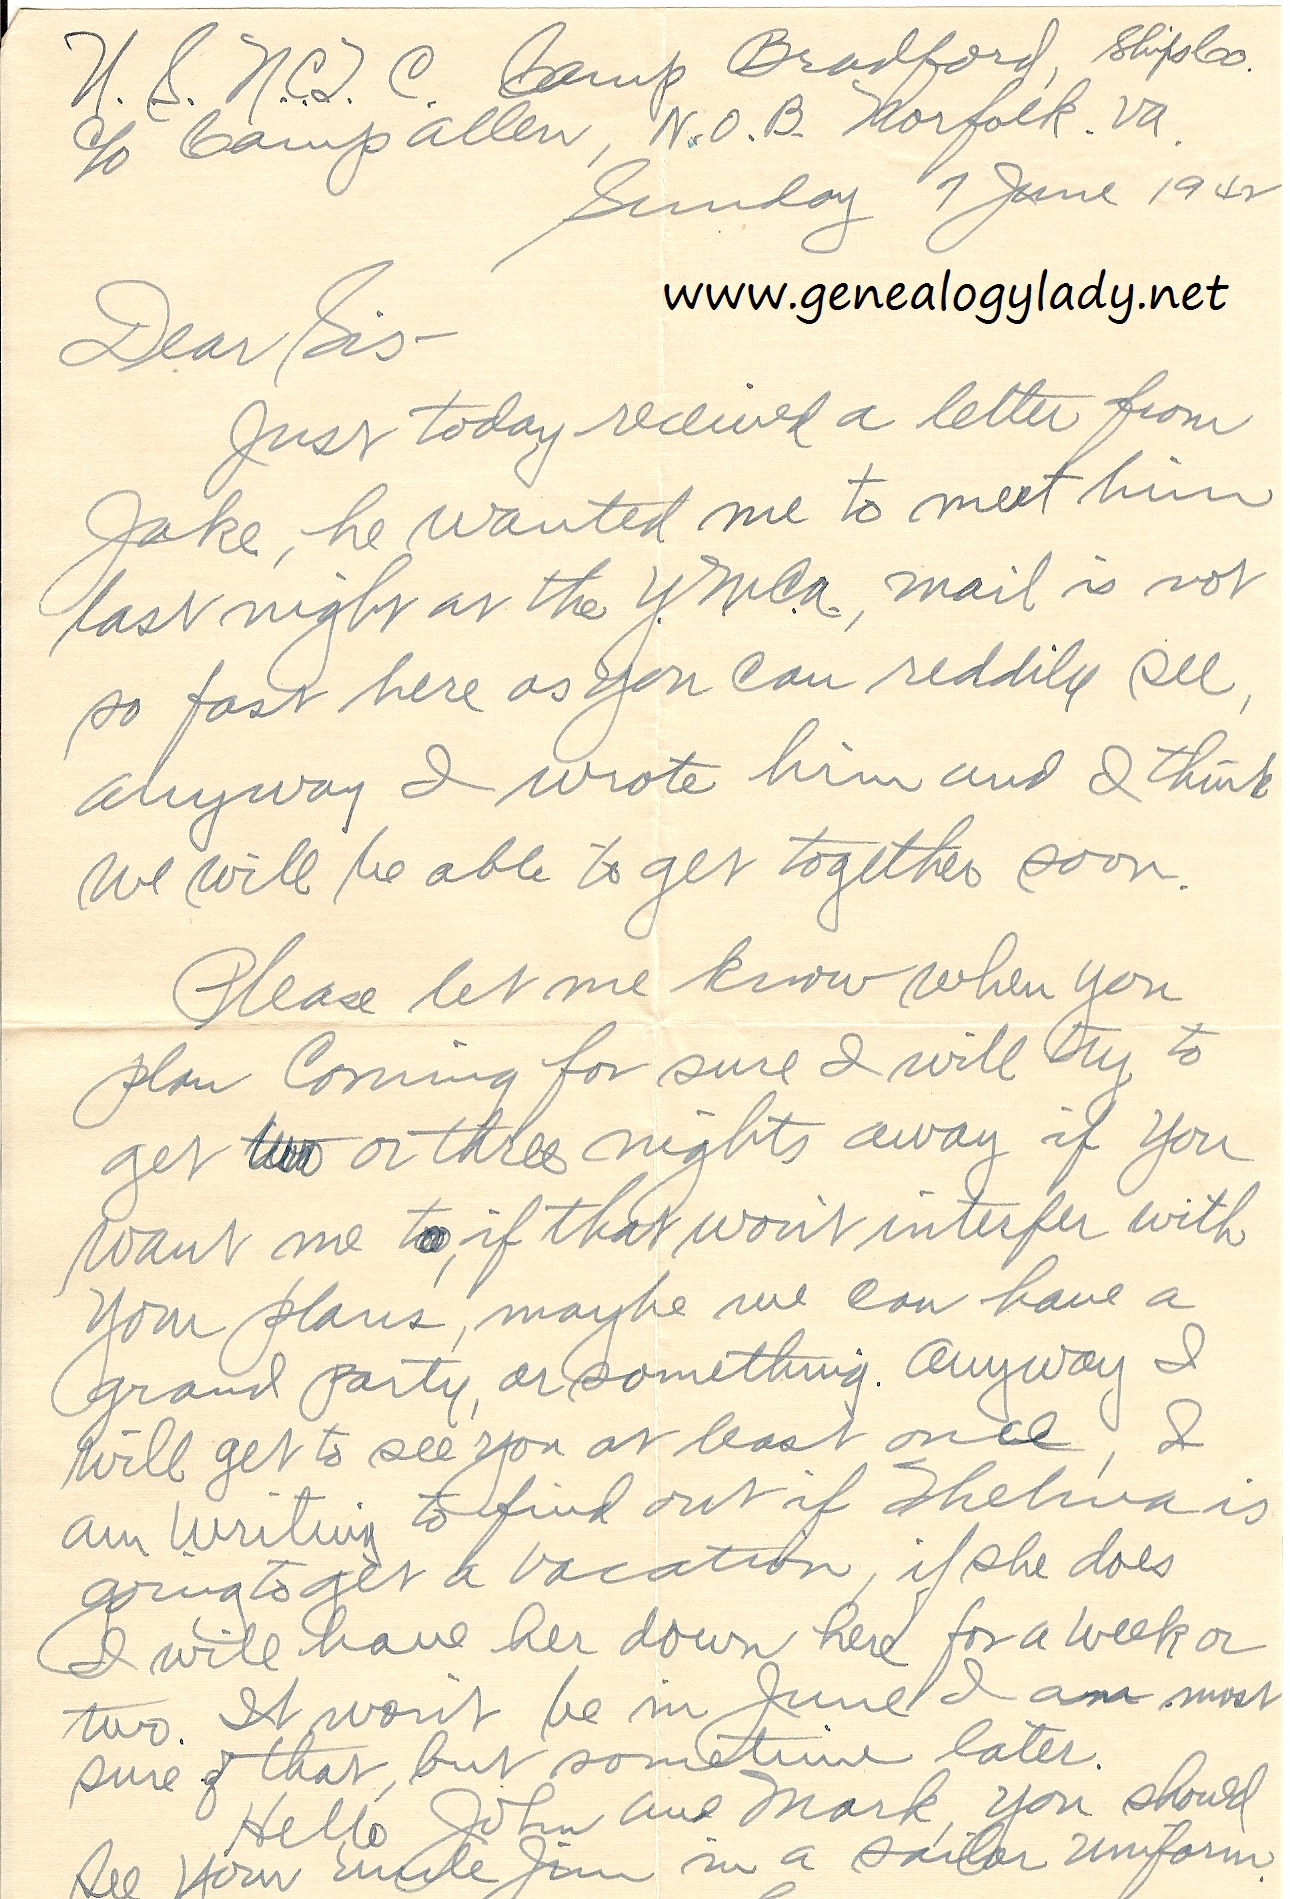 U. S. N.C.T. C. Camp Bradford, Ships Co.
c/o Camp Allen, N.O.B. Norfolk. Va.
Sunday 7 June 1942
www.genealogylady.net
Dear Sis-
Just today received a letter from
Jake, he wanted me to meet him
last night at the Y.M.C.A., mail is not
so fast here as you can reddily see,
anyway I wrote him and I think
we will be able to get together soon.
Please let me know when you
plan Coming for sure I will try to
get two or three nights away if you
want me to, if that won't interfer with
your plans, maybe we can have a
grand party, or something. Anyway I
will get to see you at least once, I
am writing to find out if Thelma is
going to get a vacation, if she does
I will have her down here for a week or
two. It won't be in June I am most
sure of that, but sometime later.
Hello John and Mark, you should
see your uncle Jim in a sailor uniform.